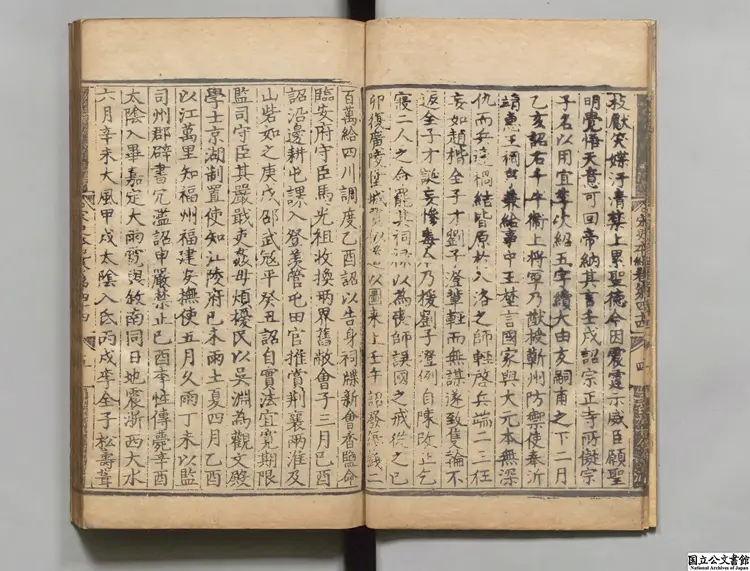 獻笑媒汙清禁上累聖德今因震霆示威臣願聖
明覺悟天意可回帝納其言壬戌詔宗正寺所擬宗
子名以用宜季次紹五字續大由友嗣甫之下二月
乙亥詔右千牛衛上將軍乃猷授蘄州防禦使奉沂
靖惠王祠事兼給事中王埜言國家與大元本無深
仇而兵連禍結皆原於入洛之師輕啓兵端二三狂
妄如趙楷全子才劉子澄輩輕而無謀遂致隻輪不
返全子才誕妄慘毒今乃援劉子澄例自陳改正乞
寢二人之命罷其祠祿以為喪師誤國之戒從之己
卯復廣陵堡城賈似道以圖來上壬午詔發緡錢二
百萬給四川調度乙酉詔以告身祠牒新會香鹽命
臨安府守臣馬光祖收換兩界舊敝會子三月己酉
詔沿邊耕屯課入登羨管屯田官推賞荆襄兩淮及
山砦如之庚戌邵武寇平癸丑詔自實法宜寬期限
監司守臣其嚴戢吏姦毋煩擾民以吳淵為觀文殿
學士京湖制置使知江陵府己未雨土夏四月乙酉
以江萬里知福州福建安撫使五月久雨丁未以監
司州郡辟書冗濫詔申嚴禁止己酉李性傳薨辛酉
太陰入畢嘉定大雨雹與敘南同日地震浙西大水
六月辛未大風甲戌太陰入氐丙戌李全子松壽葺
国立公文書館
National Archives of Japan